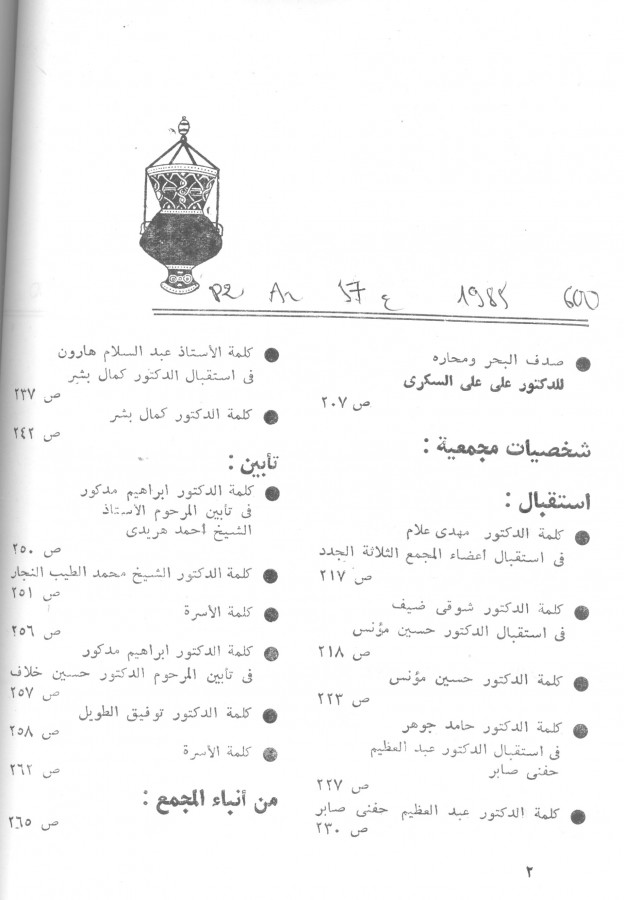 P2 Ar 57 ع 1985 600
صدف البحر ومحاره
للدكتور على على السكرى
ص ٢٠٧
شخصيات مجمعية :
استقبال :
كلمة الدكتور مهدى علام
فى استقبال أعضاء المجمع الثلاثة الجدد
ص ٢١٧
كلمة الدكتور شوقى ضيف
فى استقبال الدكتور حسين مؤنس
ص ٢١٨
كلمة الدكتور حسين مؤنس
ص ٢٢٣
كلمة الدكتور حامد جوهر
فى استقبال الدكتور عبد العظيم
حفنى صابر
ص ٢٢٧
كلمة الدكتور عبد العظيم حفنى صابر
ص ٢٣٠
كلمة الأستاذ عبد السلام هارون
فى استقبال الدكتور كمال بشر
ص ٢٣٧
كلمة الدكتور كمال بشر
ص ٢٤٢
تأبين :
كلمة الدكتور ابراهيم مدكور
فى تأبين المرحوم الأستاذ
الشيخ أحمد هريدى
ص ٢٥٠
كلمة الدكتور الشيخ محمد الطيب النجار
ص ٢٥١
كلمة الأسرة
ص ٢٥٦
كلمة الدكتور ابراهيم مدكور
فى تأبين المرحوم الدكتور حسين خلاف
ص ٢٥٧
كلمة الدكتور توفيق الطويل
ص ٢٥٨
كلمة الأسرة
ص ٢٦٢
من أنباء المجمع :
ص ٢٦٥
٢